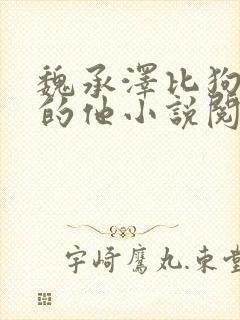 魏承澤比狗
的他小說閱
宇崎鷹丸.東堂